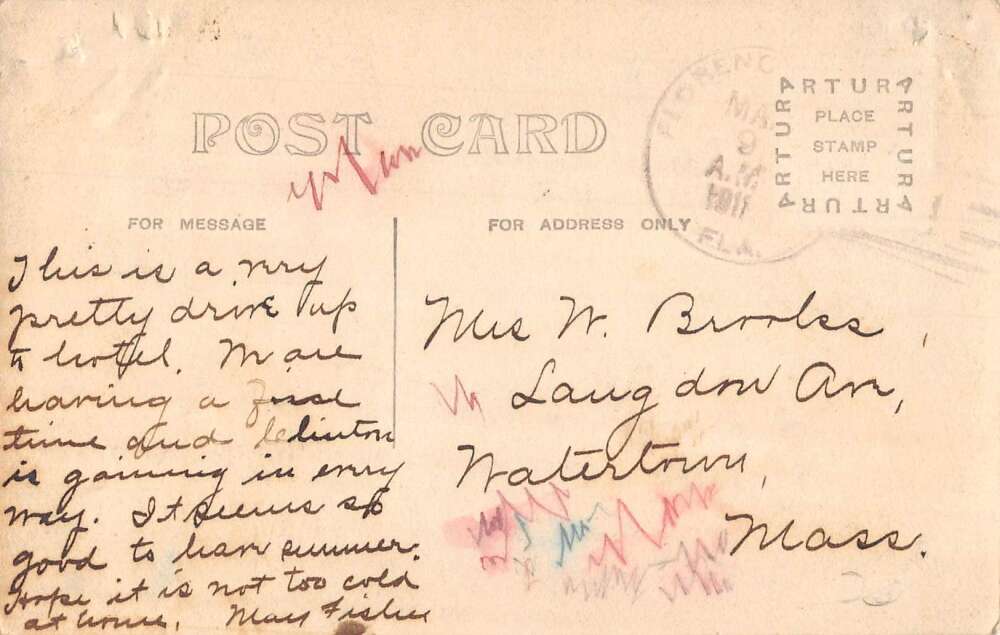 POST CARD
FLORENC
MA
9
A.M.
1911
FLA.
ARTURA
ARTURA
ARTURA
ARTURA
PLACE
STAMP
HERE
FOR MESSAGE
FOR ADDRESS ONLY
This is a very
pretty drive up
to hotel. We are
having a fine
time and Clinton
is gaining in every
way. It seems so
good to have summer.
Hope it is not too cold
at home. May Fisher
Mrs W. Brooks,
Langdon Av,
Watertown,
Mass.